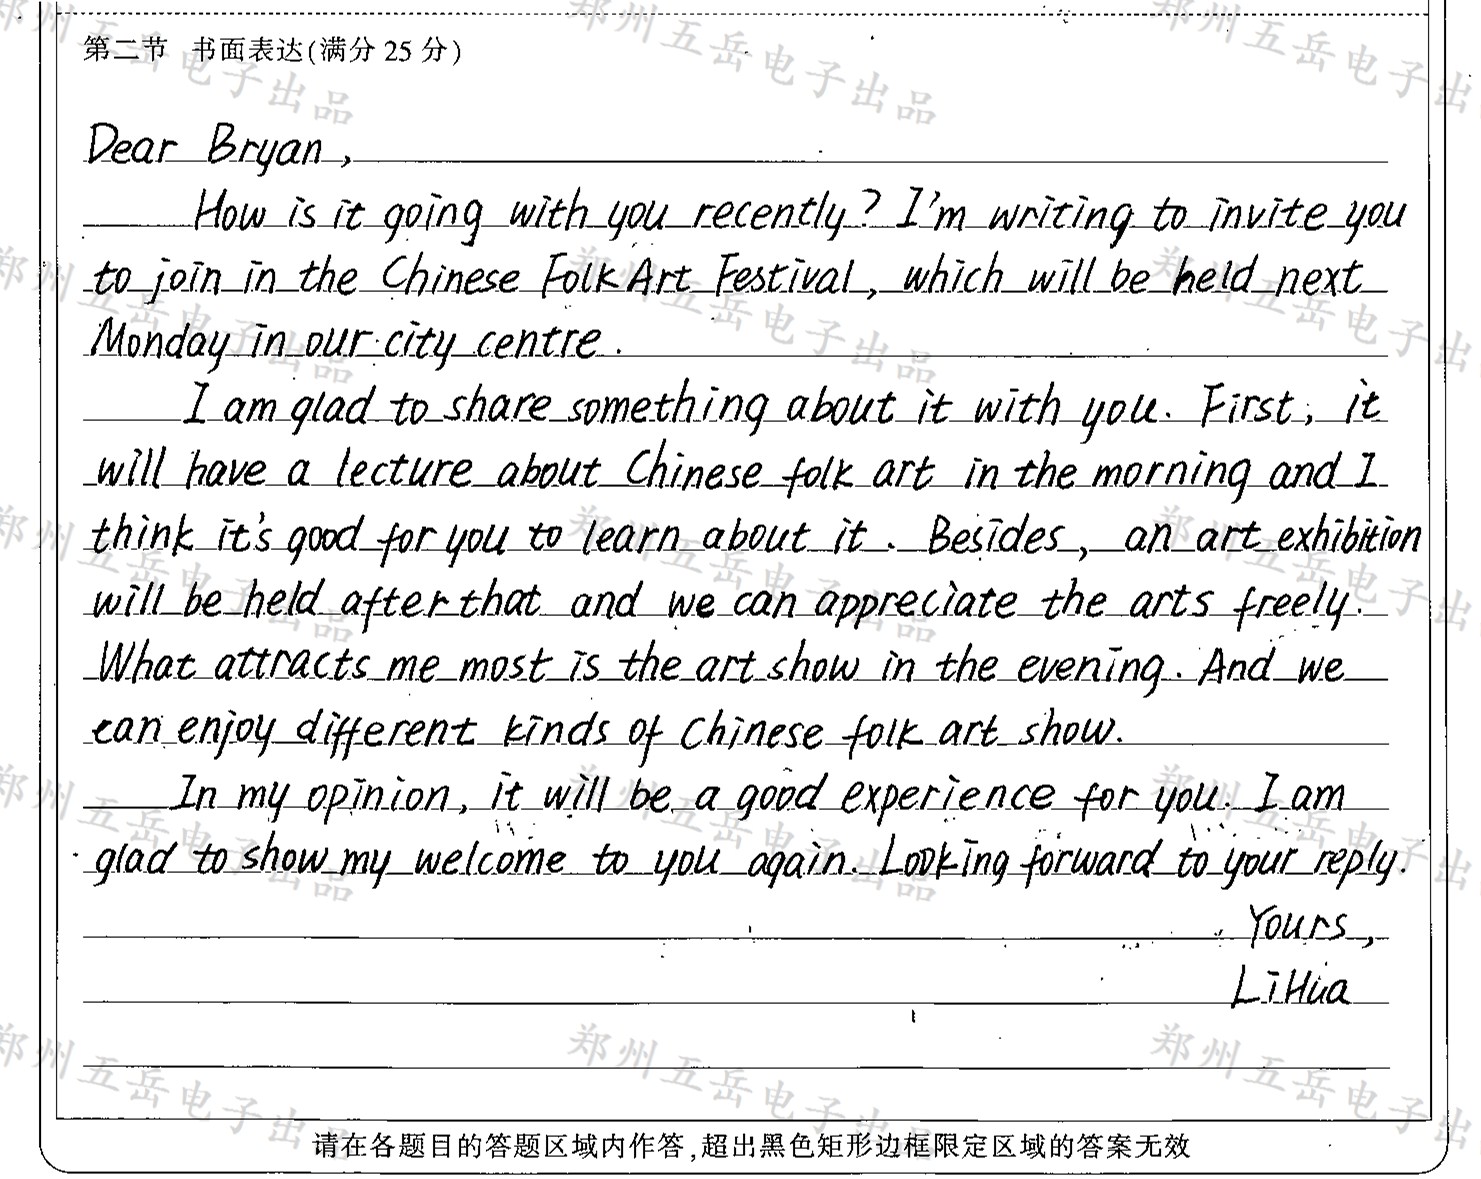 第二节 书面表达(满分 25 分)
Dear Bryan,
How is it going with you recently? I'm writing to invite you
to join in the Chinese Folk Art Festival, which will be held next
Monday in our city centre.
I am glad to share something about it with you. First, it
will have a lecture about Chinese folk art in the morning and I
think it's good for you to learn about it. Besides, an art exhibition
will be held after that and we can appreciate the arts freely.
What attracts me most is the art show in the evening. And we
can enjoy different kinds of Chinese folk art show.
In my opinion, it will be a good experience for you. I am
glad to show my welcome to you again. Looking forward to your reply.
Yours,
Li Hua
请在各题目的答题区域内作答,超出黑色矩形边框限定区域的答案无效
郑州五岳电子出品